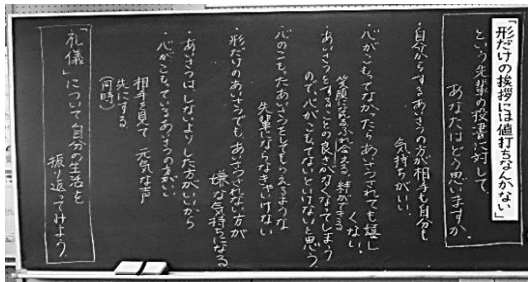 「形だけの挨拶には値打ちなんかない」
という先輩の投書に対して、
あなたはどう思いますか。
・自分からするあいさつの方が相手も自分も
気持ちがいい。
・心がこもってなかったらあいさつされても嬉し
くない。
笑顔になる 絆ができる
・あいさつをすることの良さがなくなってしまう
ので、心がこもってないといけないと思う。
心のこもったあいさつをしてもらえるような
先輩にならなきゃいけない
・形だけのあいさつでも、あいさつされない方が
嫌な気持ちになる
・あいさつはしないよりした方がいいから
・心がこもっているあいさつの方がいい
相手を見て 元気な声
先にする
(同時)
「礼儀」について自分の生活を
振り返ってみよう。